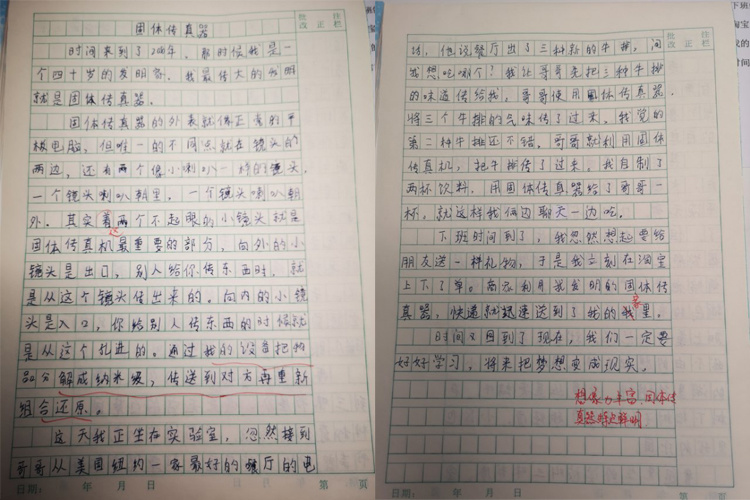 批改 注正栏
固体传真器
时间来到了20年。那时侯我是一
个四十岁的发明家。我最伟大的发明
就是固体传真器。
固体传真器的外表就像正常的平
板电脑，但唯一的不同点就在镜头的
两边，还有两个像小喇叭一样的镜头，
一个镜头喇叭朝里，一个镜头喇叭朝
外。其实着两个不起眼的小镜头就是
这
固体传真机最重要的部分，向外的小
镜头是出口，别人给你传东西时，就
是从这个镜头传出来的。向内的小镜
头是入口，你给别人传东西的时候就
是从这个扎进的。通过我的设备把物
品分解成纳米级，传送到对方再重新
组合还原。
这天我正坐在实验室，忽然接到
哥哥从美国纽约一家最好的餐厅的电
日期： 年 月 日 第 页
批改 注正栏
话，他说餐厅出了三种新的牛排，问
我想吃哪个？我让哥哥先把三种牛排
的味道传给我，哥哥使用固体传真器
将三个牛排的气味传了过来。我觉的
第二种牛排还不错，哥哥就利用固体
传真机，把牛排传了过来。我自制了
两杯饮料，用固体传真器给了哥哥一
杯，就这样我俩边聊天一边吃。
下班时间到了，我忽然想起要给
朋友送一样礼物，于是我立刻在淘宝
上下了单。商家利用我发明的固体传
真器，快递就迅速送到了我的我里。
家
时间又回到了现在，我们一定要
好好学习，将来把梦想变成现实。
想像力丰富，固体传
真器特点鲜明
日期： 年 月 日 第 页